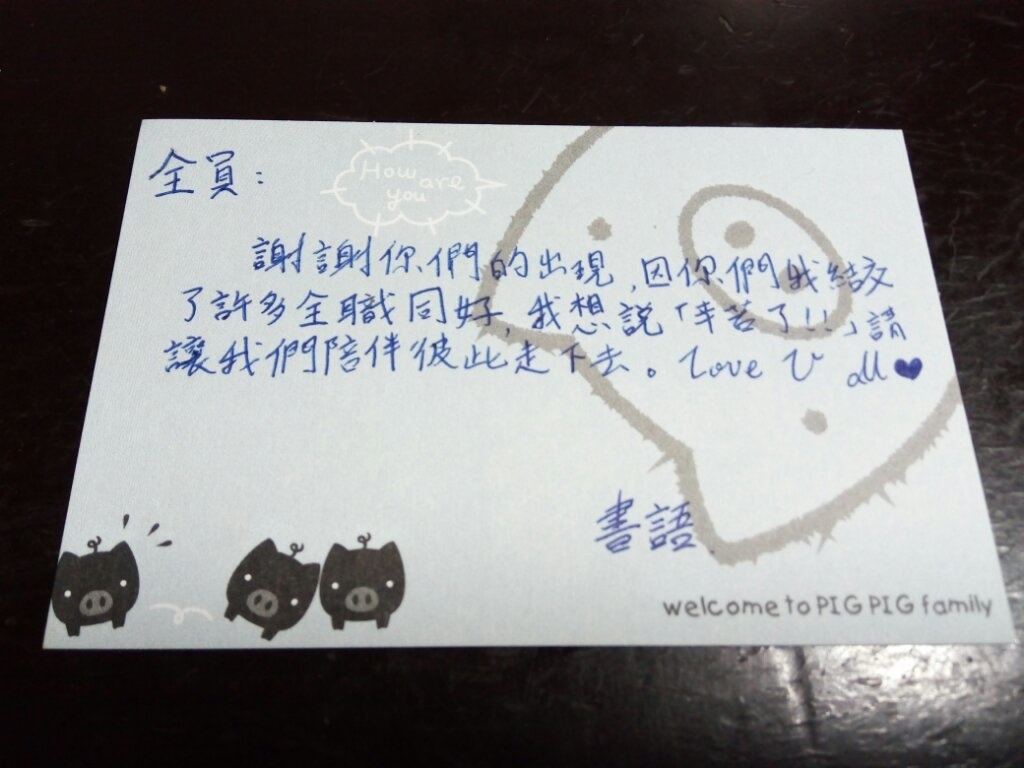 全員：
How are you
謝謝你們的出現,因你們我結交
了許多全職同好,我想説「辛苦了!!」請
讓我們陪伴彼此走下去。Love U all♥
書語
welcome to PIG PIG family